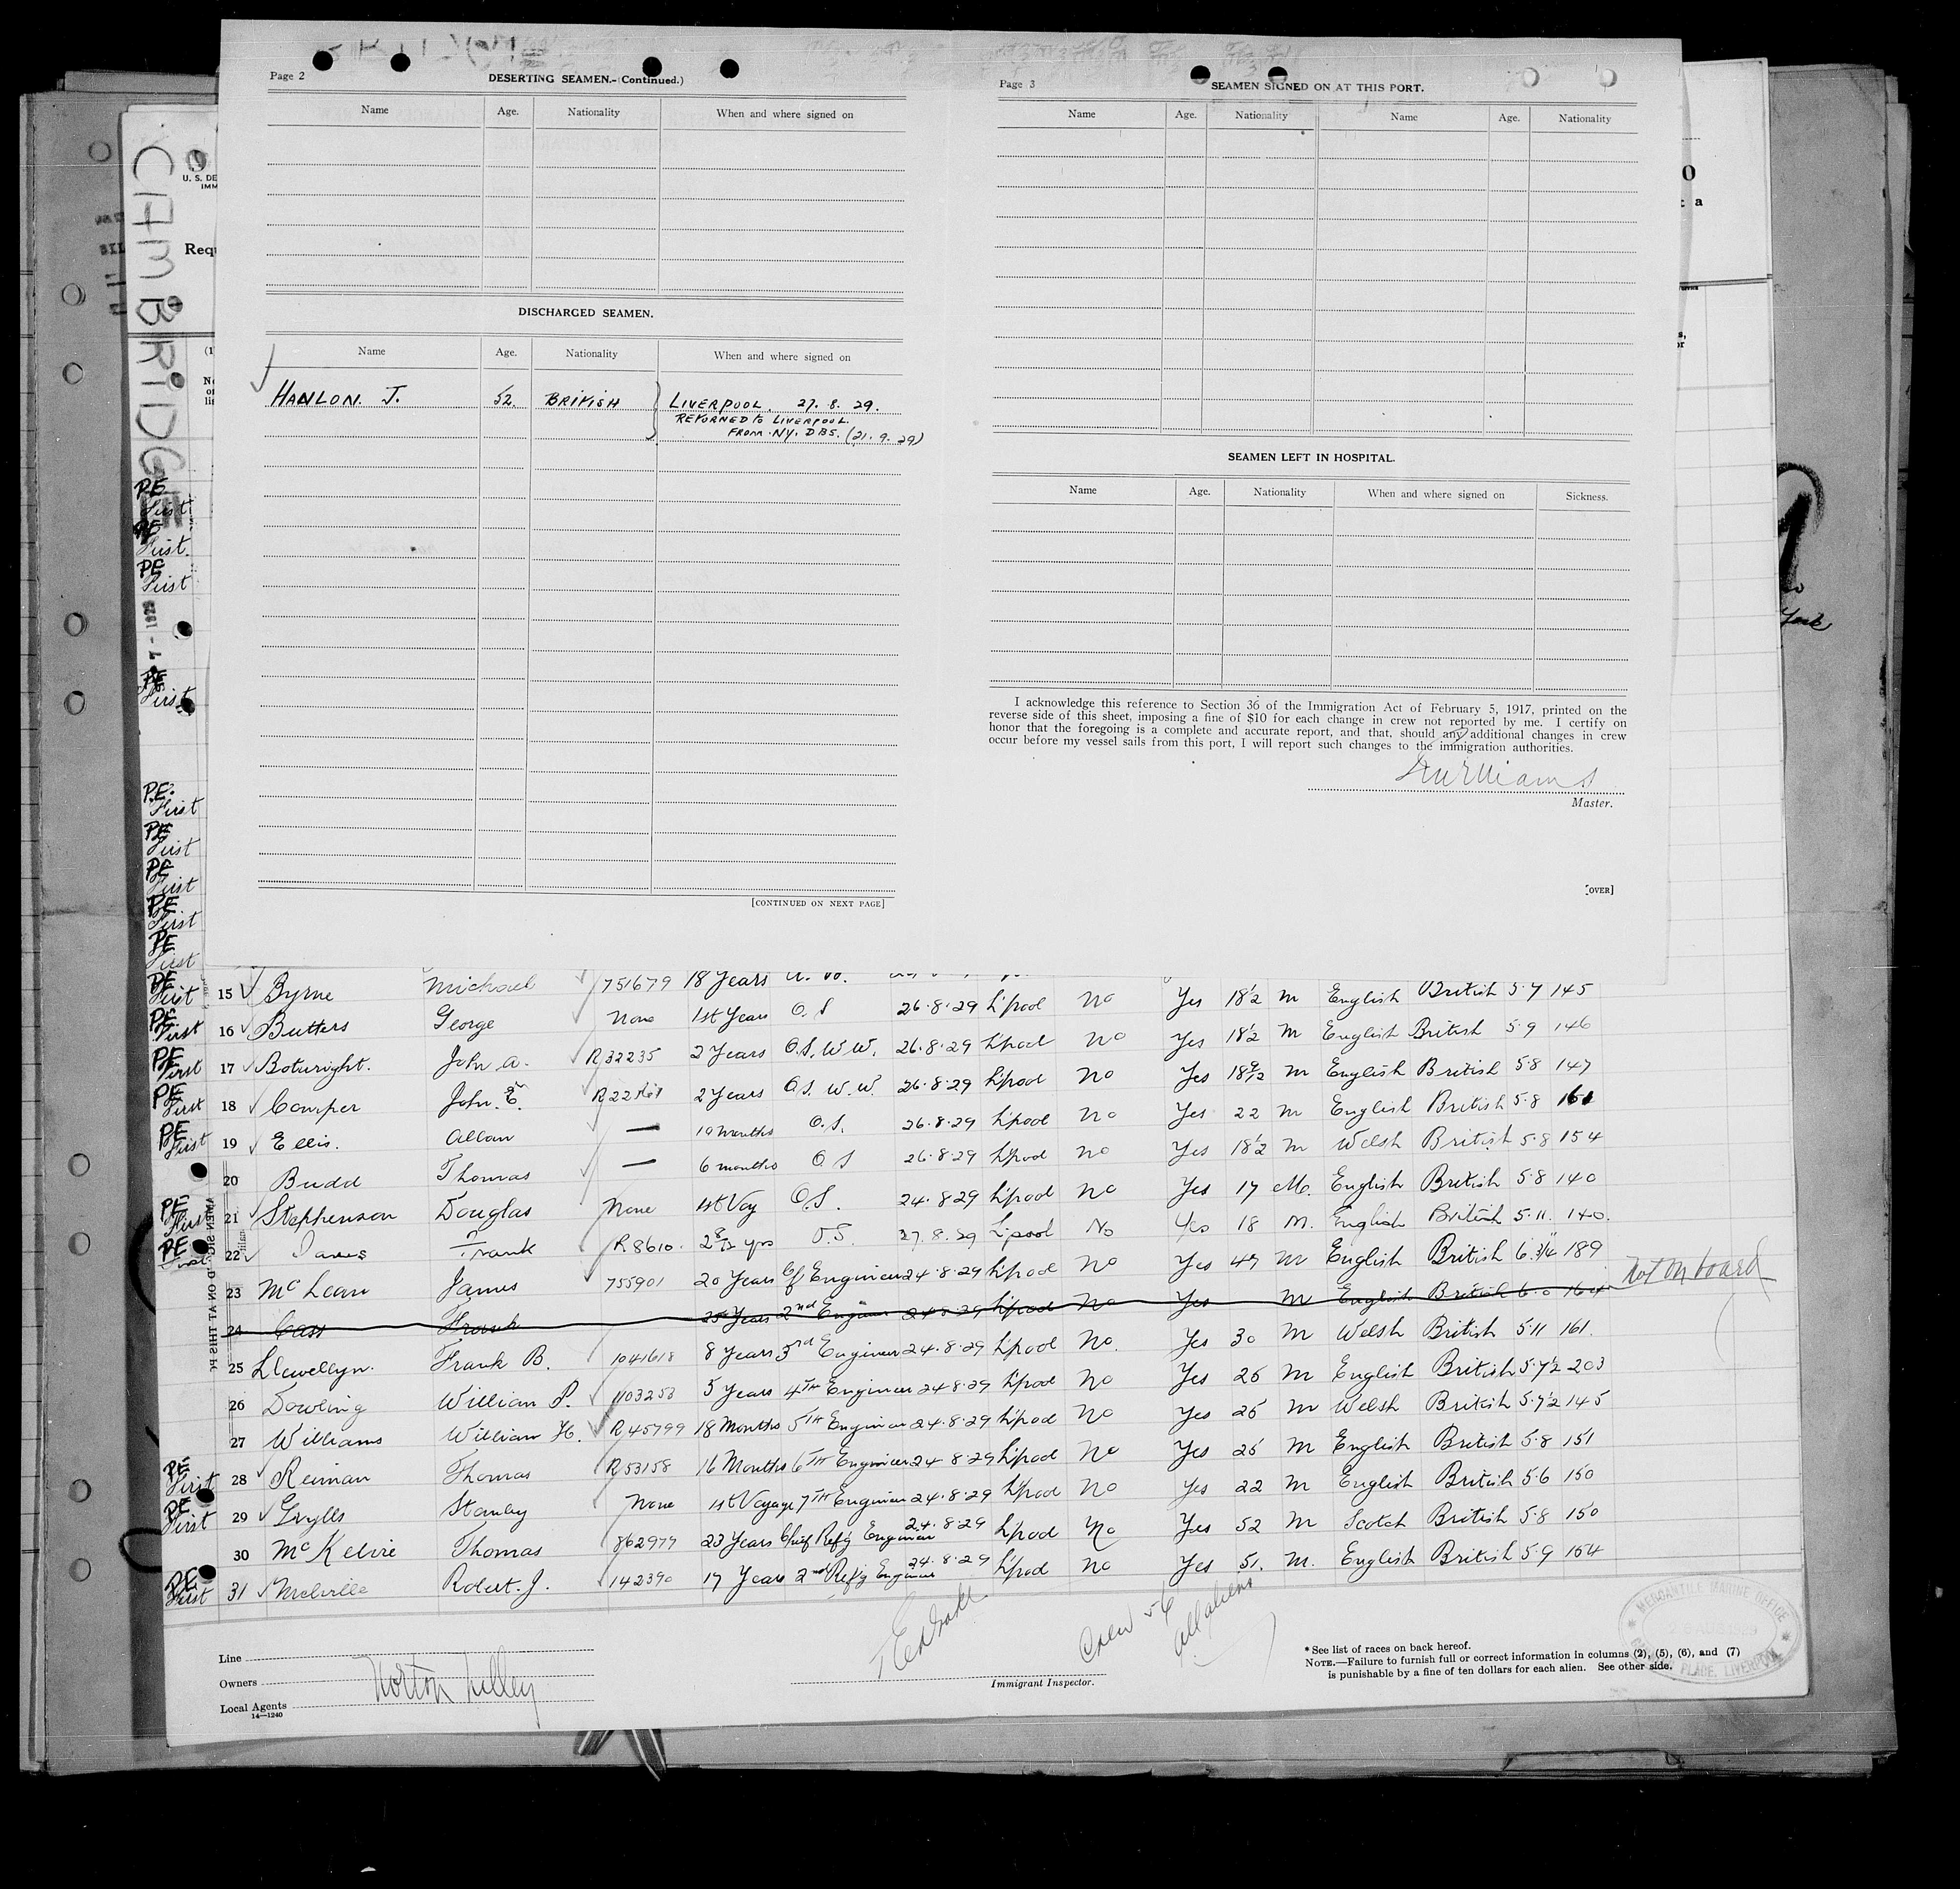 Page 2 DESERTING SEAMEN.-(Continued.)
Name Age. Nationality When and where signed on
DISCHARGED SEAMEN.
Name Age. Nationality When and where signed on
HANLON. J. 52. BRITISH LIVERPOOL. 27. 8. 29.
RETURNED to LIVERPOOL.
FROM. NY. DBS. (21. 9. 29)
[CONTINUED ON NEXT PAGE]
Page 3 SEAMEN SIGNED ON AT THIS PORT.
Name Age. Nationality Name Age. Nationality
SEAMEN LEFT IN HOSPITAL.
Name Age. Nationality When and where signed on Sickness.
I acknowledge this reference to Section 36 of the Immigration Act of February 5, 1917, printed on the
reverse side of this sheet, imposing a fine of $10 for each change in crew not reported by me. I certify on
honor that the foregoing is a complete and accurate report, and that, should any additional changes in crew
occur before my vessel sails from this port, I will report such changes to the immigration authorities.
Master.
[OVER]
CAMBRIDGE
PE First 15 Byrne Michael 751679 18 Years
PE First 16 Butters George None 1st Years O.S 26.8.29 L'pool No Yes 18½ M English British 5.7 145
PE First 17 Botwright. John A. R32235 2 Years O.S. W.W. 26.8.29 L'pool No Yes 18½ M English British 5.9 146
PE First 18 Comper John. E. 2 Years O.S. W.W. 26.8.29 L'pool No Yes M English British 5.8 147
PE First 19 Ellis. Allan — 10 Months O.S. 26.8.29 L'pool No Yes 22 M English British 5.8
20 Budd Thomas — 6 months O.S 26.8.29 L'pool No Yes 18½ M Welsh British 5.8 154
PE First 21 Stephenson Douglas None 1st Voy O.S. 24.8.29 L'pool No Yes 17 M. English British 5.8 140
PE First 22 Frank R8610. yrs O.S 27.8.29 L'pool No Yes 18 M. English British 5.11. 140.
23 McLean James 755901 20 Years Cf Engineer 24.8.29 L'pool No Yes 47 M English British 6.¾" 189
24 Cass Frank 25 Years 2nd Engineer 24.8.29 L'pool No Yes M English British 6.0 164 Not on board
25 Llewellyn. Frank B. 1041618 8 Years 3rd Engineer 24.8.29 L'pool No. Yes 30 M Welsh British 5.11 161.
26 Dowling William P. 1103253 5 Years 4TH Engineer 24.8.29 L'pool No Yes 26 M English British 5.7½ 203
27 Williams William H. R45799 18 Months 5TH Engineer 24.8.29 L'pool No Yes 25 M Welsh British 5.7½ 145
PE First 28 Reiman Thomas R53158 16 Months 6TH Engineer 24.8.29 L'pool No Yes 25 M English British 5.8 151
PE First 29 Grylls Stanley None 1st Voyage 7TH Engineer 24.8.29 L'pool No Yes 22 M English British 5.6 150
30 McKelvie Thomas 862977 23 Years Chief Refg Engineer 24.8.29 L'pool No Yes 52 M Scotch British 5.8 150
PE First 31 Melville Robert. J. 142390 17 Years 2nd Refg Engineer 24.8.29 L'pool No Yes 51. M. English British 5.9 164
Crew 56
all aliens
Line
Owners
Local Agents
Norton Lilley
14—1240
Immigrant Inspector.
* See list of races on back hereof.
NOTE.—Failure to furnish full or correct information in columns (2), (5), (6), and (7)
is punishable by a fine of ten dollars for each alien. See other side.
MERCANTILE MARINE OFFICE
PLACE, LIVERPOOL